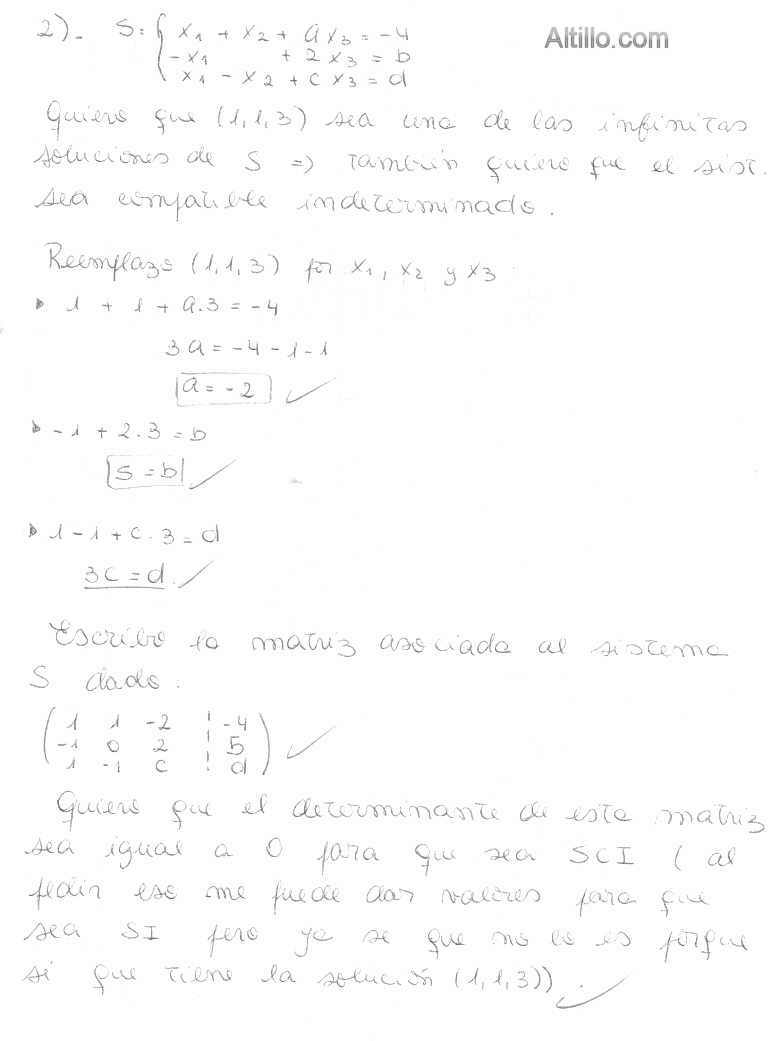 2). S: { x1 + x2 + a x3 = -4
Altillo.com
-x1 + 2 x3 = b
x1 - x2 + c x3 = d
Quiero que (1,1,3) sea una de las infinitas
soluciones de S => también quiero que el sist.
sea compatible indeterminado.
Reemplazo (1,1,3) por x1, x2 y x3
• 1 + 1 + a.3 = -4
3a = -4 -1 -1
a = -2 ✓
• -1 + 2.3 = b
5 = b ✓
• 1 - 1 + c.3 = d
3c = d. ✓
Escribo la matriz asociada al sistema
S dado.
1 1 -2 ¦ -4
-1 0 2 ¦ 5 ✓
1 -1 c ¦ d
Quiero que el determinante de esta matriz
sea igual a 0 para que sea SCI (al
pedir eso me puede dar valores para que
sea SI pero ya se que no lo es porque
si que tiene la solución (1,1,3)). ✓